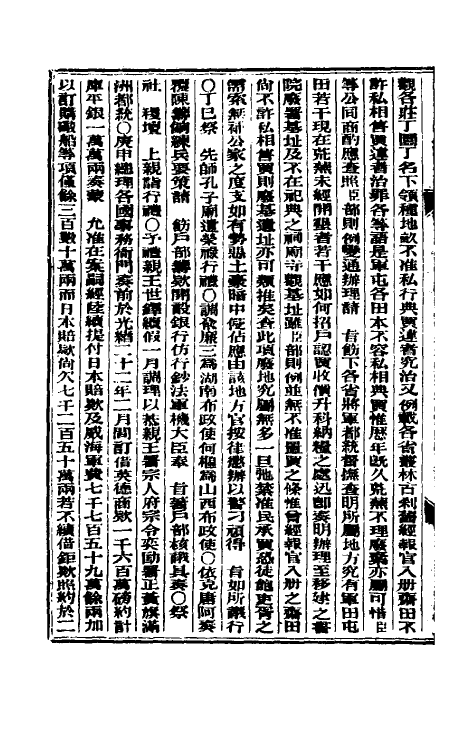 觀各莊丁園丁名下領種地畝不准私行典賣違者究治又例載各省叢林古剎舊經報官入册齋田不
許私相售賣違者治罪各等語是軍屯各田本不容私相典賣惟歷年旣久荒蕪不理廢棄亦屬可惜臣
等公同商酌應查照臣部則例變通辦理請 旨飭下各省將軍都統督撫查明所屬地方究有軍田屯
田若干現在荒蕪未經開墾者若干應如何招戶認買收價升科納糧之處迅卽奏明辦理至移建之舊
院廢署基址及不在祀典之祠廟寺觀基址雖臣部則例並無不准置買之條惟曾經報官入册之齋田
尚不許私相售賣則廢基遺址亦可類推矣查此項廢地究屬無多一旦弛禁准民承買恐徒飽吏胥之
需索無補公家之度支如有勢惡土豪暗中侵佔應由該地方官按律懲辦以警刁頑得 旨如所議行
○丁巳祭 先師孔子廟遣榮祿行禮○調俞廉三爲湖南布政使何樞爲山西布政使○依克唐阿奏
覆陳籌餉練兵要策請 飭戶部籌款開設銀行仿行鈔法軍機大臣奉 旨著戶部核議具奏○祭
社 稷壇 上親詣行禮○予禮親王世鐸續假一月調理以豫親王署宗人府宗令奕劻署正黃旗滿
洲都統○庚申總理各國事務衙門奏前於光緒二十二年二月閒訂借英德商款一千六百萬磅約計
庫平銀一萬萬兩奏蒙 允准在案嗣經陸續提付日本賠款及威海軍費七千七百五十九萬餘兩加
以訂購礮船等項僅餘三百數十萬兩而日本賠款尚欠七千二百五十萬兩若不續借鉅款照約於二